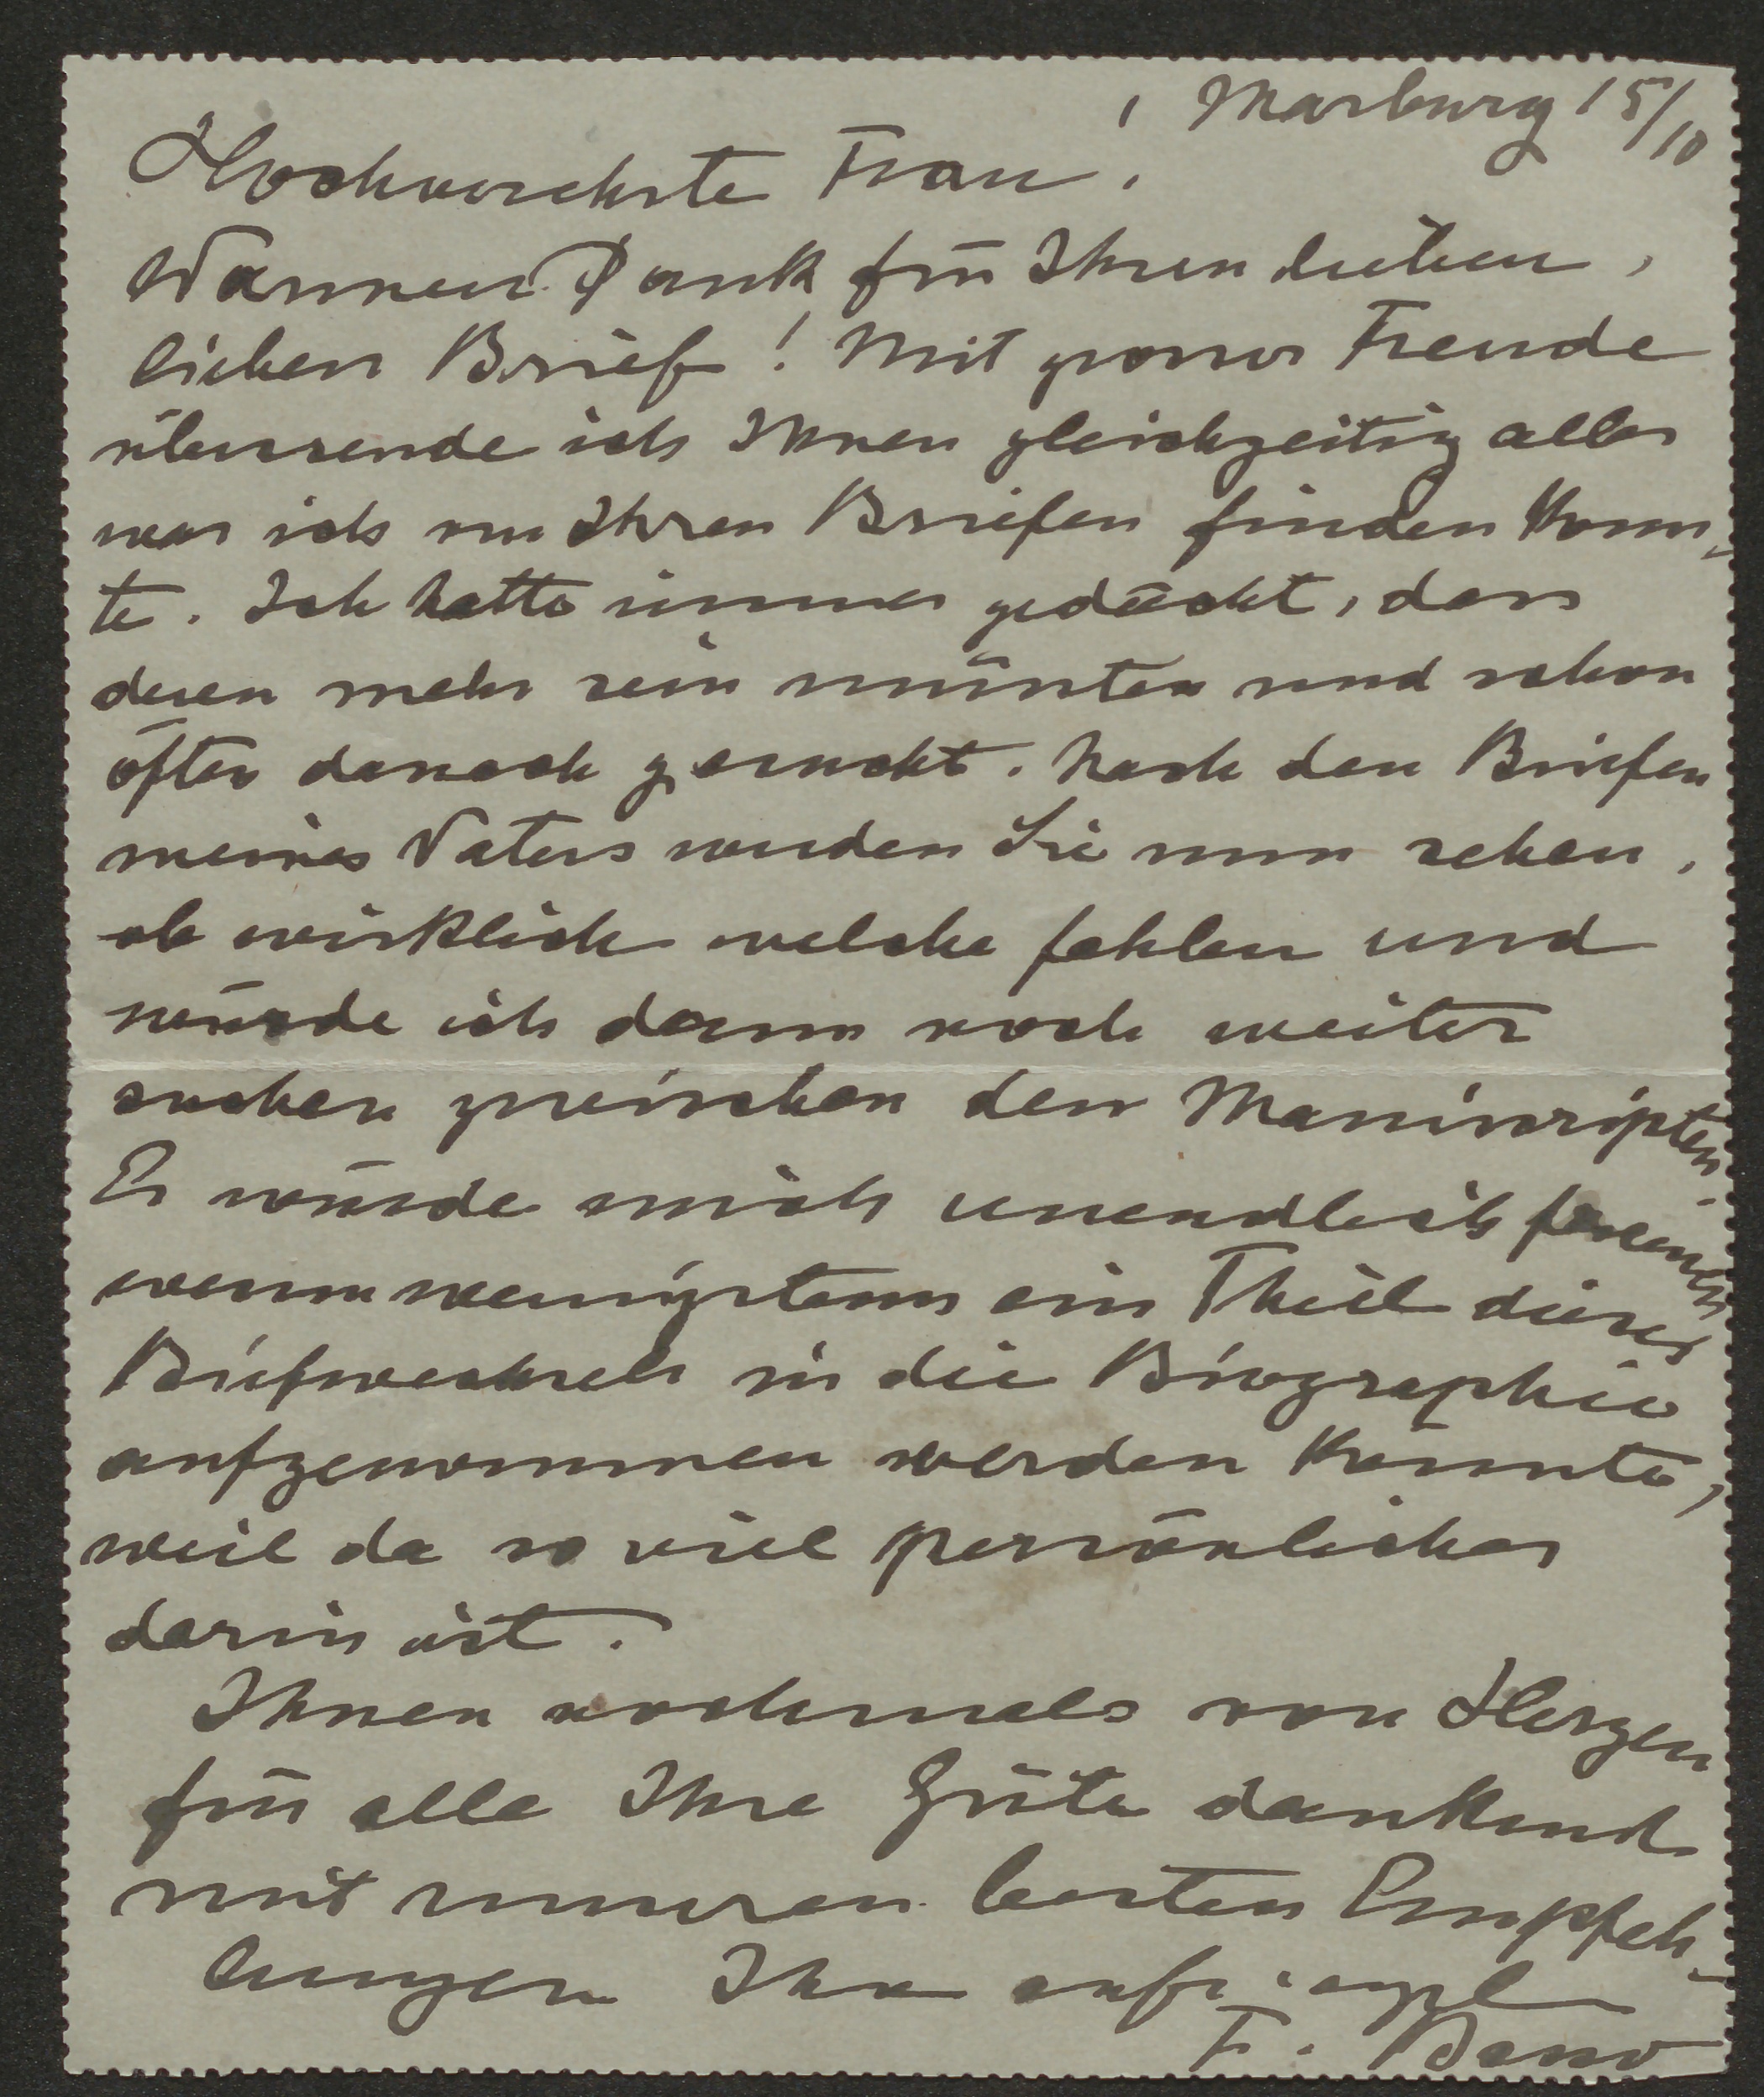 Marburg 15/10
Hochverehrte Frau!
Warmen Dank für Ihren lieben,
lieben Brief! Mit grosser Freude
übersende ich Ihnen gleichzeitig alles
was ich von Ihren Briefen finden konn-
te. Ich hatte immer gedacht, dass
deren mehr sein müssten und schon
öfter danach gesucht. Nach den Briefen
meines Vaters werden Sie nun sehen,
ob wirklich welche fehlen und
würde ich dann noch weiter
suchen zwischen den Manuscripten.
Es würde mich unendlich freuen
wenn wenigstens ein Theil dieses
Briefwechsels in die Biographie
aufgenommen werden könnte,
weil da so viel persönliches
darin ist.
Ihnen nochmals von Herzen
für alle Ihre Güte dankend
mit unseren besten Empfeh-
lungen Ihr
F.